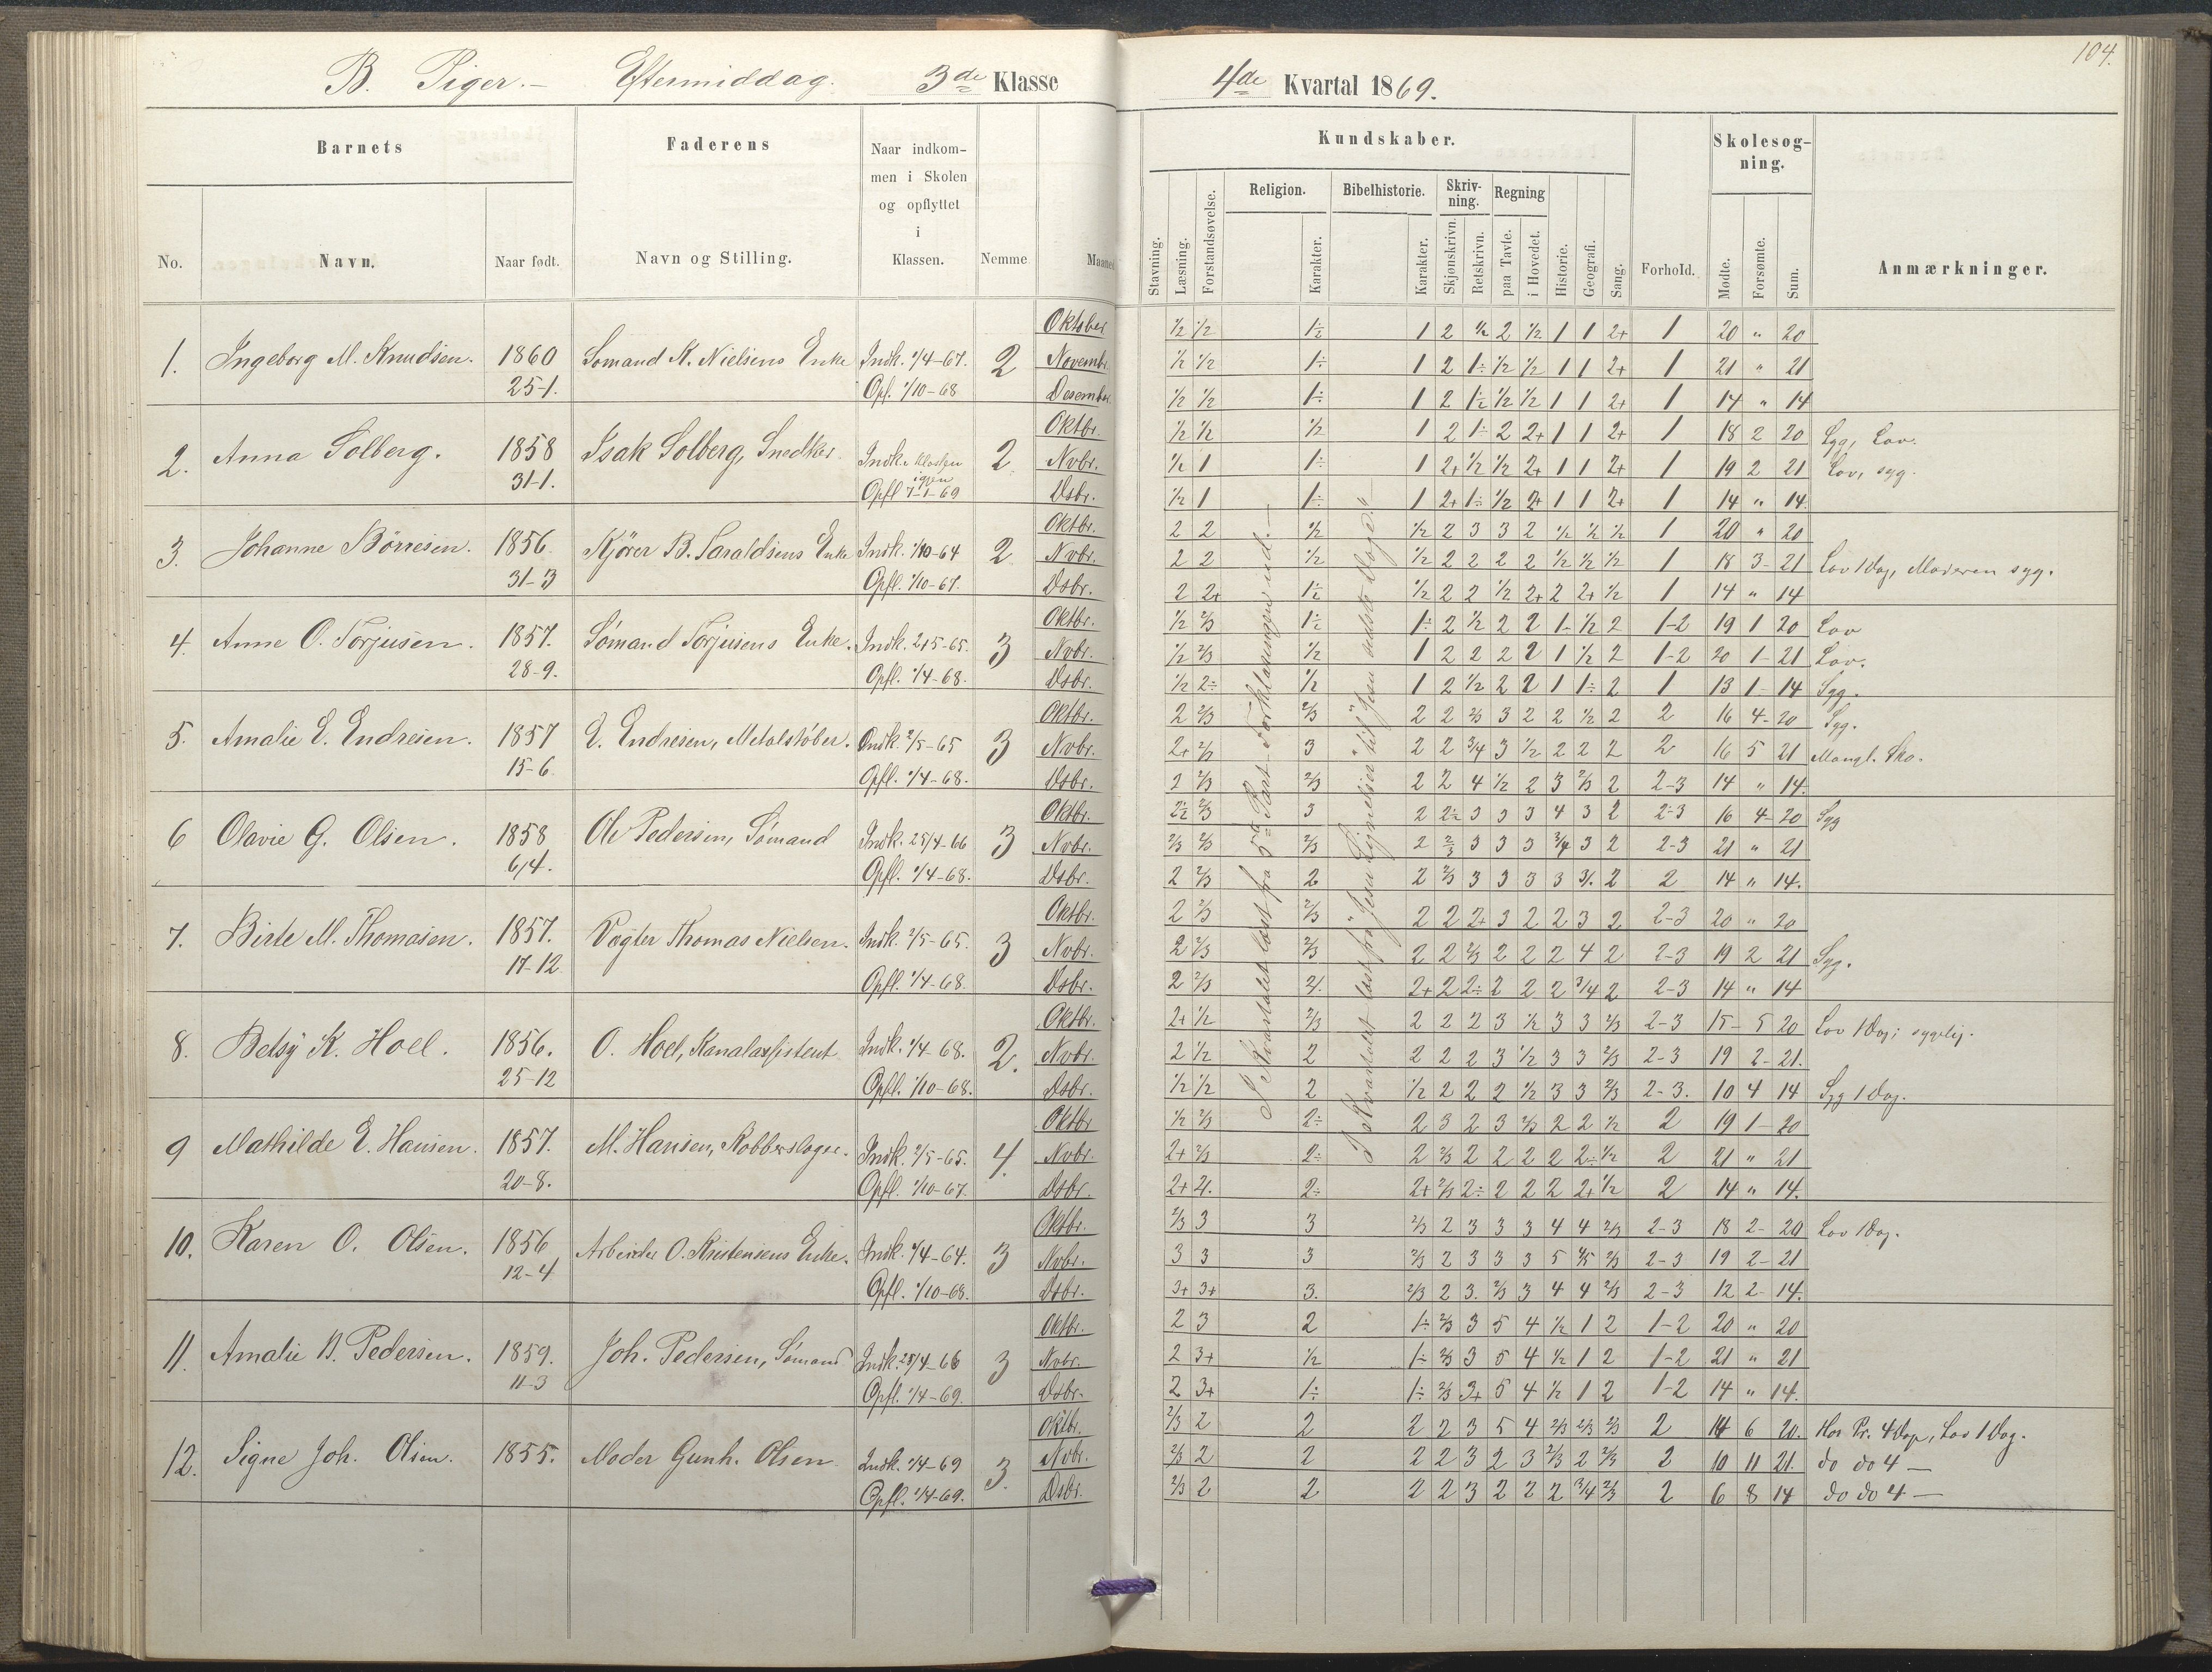 104.
B. Piger. – Eftermiddag. 3de Klasse 4de Kvartal 1869.
Barnets Faderens Naar indkommen i Skolen og opflyttet i Klassen. Nemme Maaned Kundskaber. Forhold. Skolesøgning. Anmærkninger.
No. Navn. Naar født. Navn og Stilling.
Stavning. Læsning. Forstandsøvelse. Religion. Karakter. Bibelhistorie. Karakter. Skrivning. Skjønskrivn. Retskrivn. Regning paa Tavte. i Hovedet. Historie. Geografi. Sang. Mødte. Forsømte. Sum.
Oktober 1/2 1/2 1÷ 1 2 1/2 2 1/2 1 1 2+ 1 20 " 20
1. Ingeborg M. Knudsen. 1860 Sømand K. Nielsens Enke Indk. 1/4-67. 2 Novembr. 1/2 1/2 1÷ 1 2 1÷ 1/2 1/2 1 1 2+ 1 21 " 21
25-1. Opf. 1/10-68 Desember 1/2 1/2 1÷ 1 2 1÷ 1/2 1/2 1 1 2+ 1 14 " 14
Oktbr. 1/2 1/2 1/2 1 2 1÷ 2 2+ 1 1 2+ 1 18 2 20 Syg, Lov.
2. Anna Solberg. 1858 Isak Solberg, Snedker. Indk. i Klassen igjen 2 Nvbr. 1/2 1 1÷ 1 2+ 1/2 1/2 2+ 1 1 2+ 1 19 2 21 Lov, syg.
31-1. Opfl 7-1-69 Dsbr. 1/2 1 1÷ 1 2+ 1÷ 1/2 2+ 1 1 2+ 1 14 " 14
Oktbr. 2 2 1/2 1/2 2 3 3 2 1/2 1/2 1/2 1 20 " 20
3. Johanne Börresen. 1856. Kjörer B. Saraldsens Enke Indk. 1/10-64 2 Nvbr. 2 2 1/2 1/2 2 2 2 2 1/2 1/2 1/2 1 18 3 21 Lov 1 Dag, Moderen syg.
31-3 Opfl. 1/10-67. Dsbr. 2 2+ 1÷ 1/2 2 2 1/2 2+ 2 2+ 1/2 1 14 " 14
Oktbr. 1/2 2/3 1÷ 1÷ 2 1/2 2 2 1- 1/2 2 1-2 19 1 20 Lov
4. Anne O. Torjusen. 1857. Sömand Torjusens Enke. Indk. 2/5-65. 3 Nvbr. 1/2 2/3 1/2 1 2 2 2 2 1 1/2 2 1-2 20 1 21 Lov.
28-9. Opfl. 1/4-68. Dsbr. 1/2 2÷ 1/2 1 2 1/2 2 2 1 1÷ 2 1 13 1 14 Syg.
Oktbr. 2 2/3 2/3 2 2 2/3 3 2 2 1/2 2 2 16 4 20 Syg.
5. Amalie E. Endresen. 1857 E. Endresen, Metalstöber. Indk. 2/5-65 3 Nvbr. 2+ 2/3 3 2 2 3/4 3 1/2 2 2 2 2 16 5 21 Mangl. Sko.
15-6. Opfl. 1/4-68. Dsbr. 2 2/3 2/3 2 2 4 1/2 2 3 2/3 2 2-3 14 " 14.
Oktbr. 2÷ 2/3 3 2 2÷ 3 3 3 4 3 2 2-3 16 4 20 Syg
6 Olavie G. Olsen. 1858 Ole Pedersen, Sömand Indk. 25/4-66 3 Nvbr. 2/3 2/3 2/3 2 2/3 3 3 3 3/4 3 2 2-3 21 " 21
6/4. Opfl. 1/4-68. Dsbr. 2 2/3 2 2 2/3 3 3 3 3 3/. 2 2 14 " 14.
Oktbr. 2 2/3 2/3 2 2 2+ 3 2 2 3 2 2-3 20 " 20
7. Birte M. Thomasen. 1857. Vægter Thomas Nielsen. Indk. 2/5-65. 3 Nvbr. 2 2/3 2/3 2 2 2/3 2 2 2 4 2 2-3 19 2 21 Syg.
17-12 Opfl. 1/4-68. Dsbr. 2 2/3 2/. 2+ 2 2÷ 2 2 2 3/4 2 2-3 14 " 14
Oktbr. 2+ 1/2 2/3 2 2 2 3 1/2 3 3 2/3 2-3 15 5 20 Lov 1 Dag; sygelig.
8. Betsy K. Hoel. 1856. O. Hoel, Kanalassistent Indk. 1/4-68. 2. Nvbr. 2 1/2 2 2 2 2 3 1/2 3 3 2/3 2-3 19 2 21.
25-12 Opfl. 1/10-68. Dsbr. 1/2 1/2 2 1/2 2 2 2 1/2 3 3 2/3 2-3. 10 4 14 Syg 1 Dag.
Oktbr 1/2 2/3 2÷ 2 3 2 3 2/3 2 2 1/2 2 19 1 20
9 Mathilde E. Hansen. 1857. M. Hansen, Kobberslager. Indk. 2/5-65. 4. Nvbr. 2+ 2/3 2÷ 2 2/3 2 2 2 2 2÷ 1/2 2 21 " 21
20-8. Opfl. 1/10-67. Dsbr. 2+ 2/. 2÷ 2+ 2/3 2÷ 2 2 2 2+ 1/2 2 14 " 14.
Oktbr. 2/3 3 3 2/3 2 3 3 3 4 4 2/3 2-3 18 2 20 Lov 1 Dag.
10. Karen O. Olsen. 1856 Arbeider O. Kristensens Enke. Indk. 1/4-64. 3 Nvbr. 3 3 3 2/3 2 3 3 3 5 4/5 2/3 2-3 19 2 21
12-4 Opfl. 1/10-68. Dsbr. 3+ 3+ 3. 2/3 2 3. 2/3 3 4 4 2/3 2-3 12 2 14.
Oktbr. 2 3 2 1÷ 2/3 3 5 4 1/2 1 2 1-2 20 " 20
11. Amalie B. Pedersen. 1859. Joh. Pedersen, Sömand Indk. 25/4-66 3 Nvbr. 2 3+ 1/2 1÷ 2/3 3 5 4 1/2 1 2 1-2 21 " 21
11-3 Opfl. 1/4-69. Dsbr. 2 3+ 1÷ 1÷ 2/3 3+ 5 4 1/2 1 2 1-2 14 " 14.
Oktbr. 2/3 2 2 2 2 3 5 4 2/3 2/3 2/3 2 14 6 20. Hos Pr. 4 Dage, Lov 1 Dag.
12. Signe Joh. Olsen. 1855. Moder Gunh. Olsen Indk. 1/4-69 3. Nvbr. 2/3 2 2 2 2 3 2 3 2/3 2 2/3 2 10 11 21. do do 4 —
Opfl. 1/4-69. Dsbr. 2/3 2 2 2 2 3 2 2 2 3/4 2/3 2 6 8 14 do do 4 —
I Kvartalet læst fra 5te Part Forklaringen ud. —
I Kvartalet læst fra "Jesu Lignelser" til "Jesu sidste Dage."